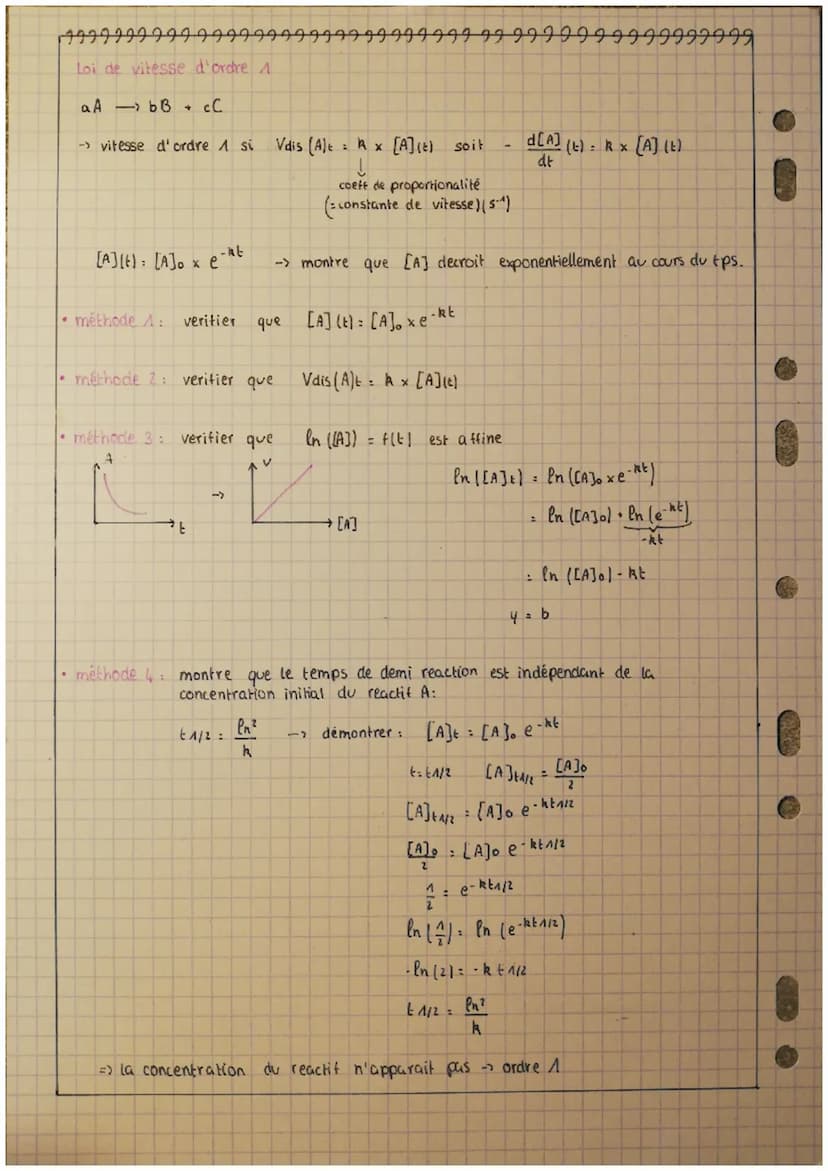 Loi de vitesse d'ordre 1
aA → bB + cC
-> vitesse d'ordre 1 si Vdis (A)t = k x [A](t) soit - d[A]/dt (t) = k x [A](t)
↓
coeff de proportionalité
(= constante de vitesse)(s⁻¹)
[A](t) = [A]₀ x e^-kt -> montre que [A] decroit exponentiellement au cours du tps.
• méthode 1 : verifier que [A](t) = [A]₀ x e^-kt
• méthode 2 : verifier que Vdis(A)t = k x [A](t)
• méthode 3 : verifier que ln([A]) = f(t) est affine
A
t
->
V
[A]
ln([A]t) = ln([A]₀ x e^-kt)
= ln([A]₀) + ln(e^-kt)
-kt
= ln([A]₀) - kt
y = b
• méthode 4 : montre que le temps de demi reaction est indépendant de la
concentration initial du reactif A:
t1/2 = ln²/k -> démontrer : [A]t = [A]₀ e^-kt
t=t1/2 [A]t1/2 = [A]₀/2
[A]t1/2 = [A]₀ e^-kt1/2
[A]₀/2 = [A]₀ e^-kt1/2
1/2 = e^-kt1/2
ln(1/2) = ln(e^-kt1/2)
-ln(2) = -kt1/2
t1/2 = ln²/k
=> la concentration du reactif n'apparait pas -> ordre 1